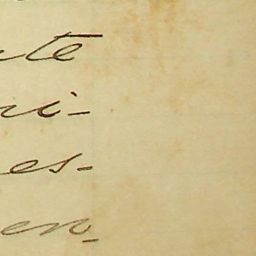 te
ri-
es-
en-